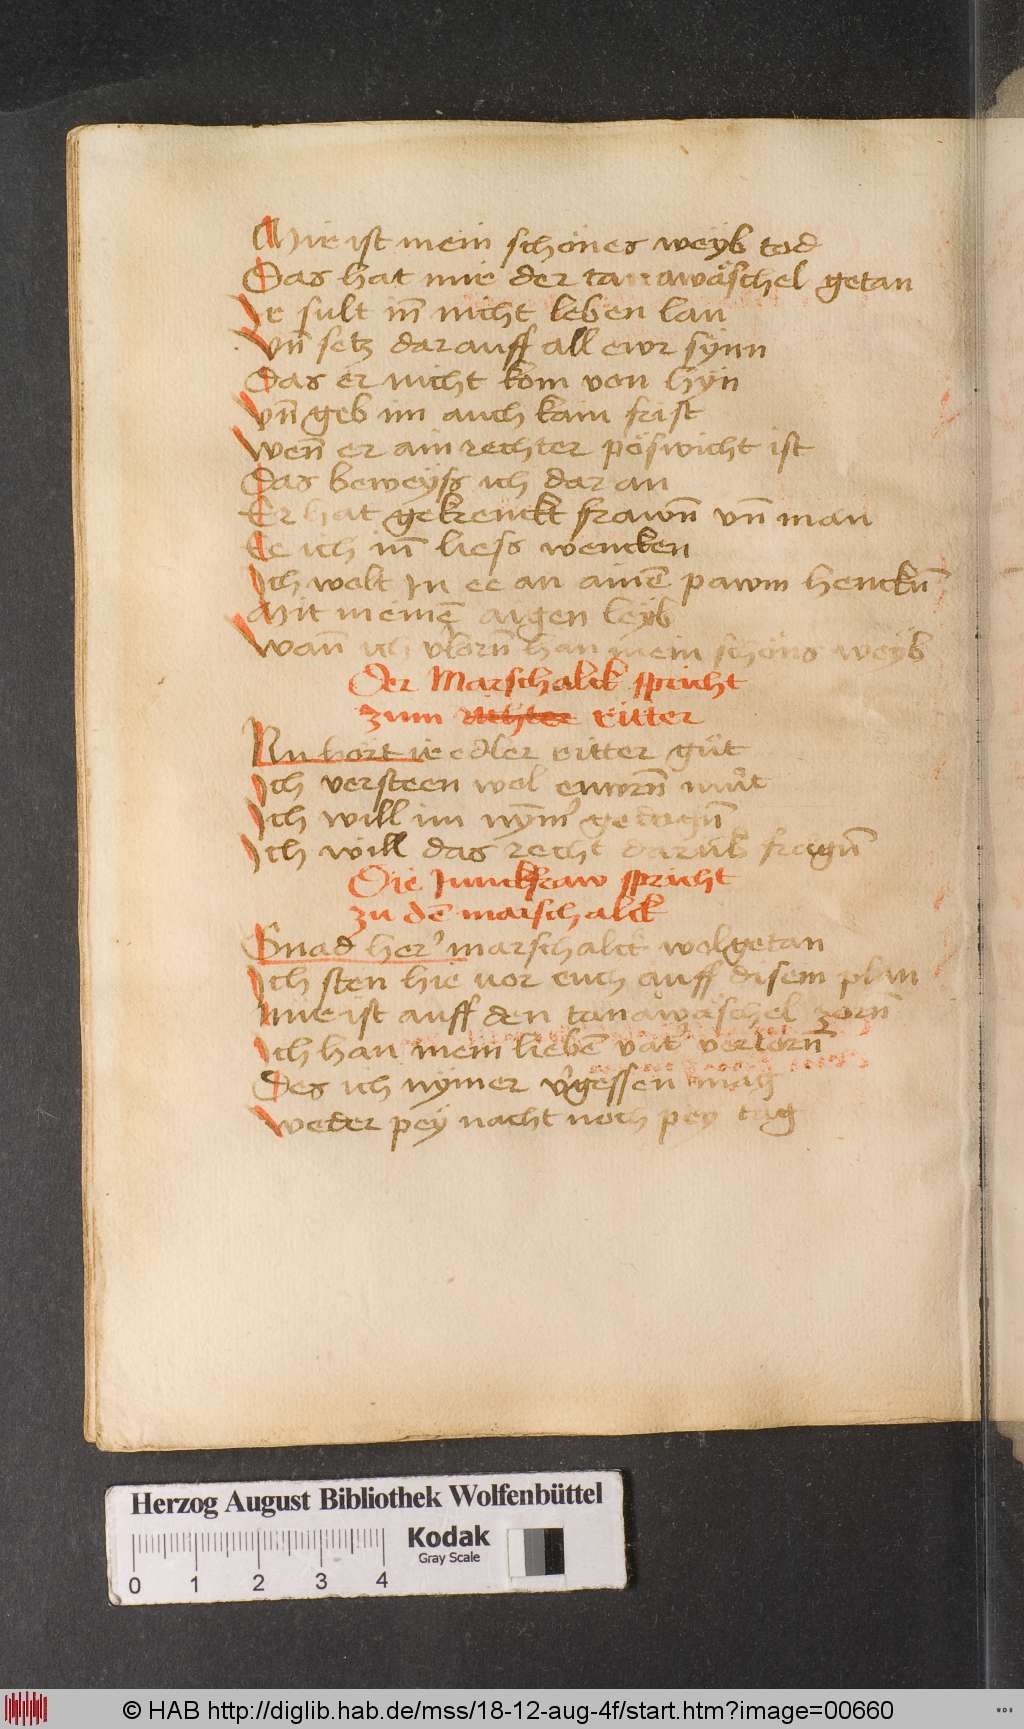 Mir ist mein schönes weyb tod
Das hat mir der tanawäschel getan
Ir sult in̄ nicht leben lan
Vn̄ setz darauff all ewr synn
Das er nicht kom von hyn
Vn̄ geb im auch kain frist
Wen̄ er ain rechter pöswicht ist
Das beweyss ich dar an
Er hat gekrenckt frawn̄ vn̄ man
Ee ich in̄ liess wencken
Ich wolt In ee an ainē pawm henckn̄
Mit meinē aigen leyb
Wan̄ ich v̓lorn̄ han mein schöns weyb
Der Marschalck spricht
zum richter ritter
Nu hört ir edler ritter güt
Ich versteen wol ewrn̄ můt
Ich will im nym̄̓ getagn̄
Ich will das recht darüb̓ fragn̄
Die Junckfraw spricht
zu dē marschalck
Gnad her̓ marschalck wolgetan
Ich sten hie vor euch auff disem plan
Mir ist auff den tanawäschel zorn̄
Ich han mein liebē vat̓ verlorn̄
Des ich nymer v̓gessen mag
Weder pey nacht noch pey tag
Herzog August Bibliothek Wolfenbüttel
Kodak
Gray Scale
0 1 2 3 4
© HAB http://diglib.hab.de/mss/18-12-aug-4f/start.htm?image=00660